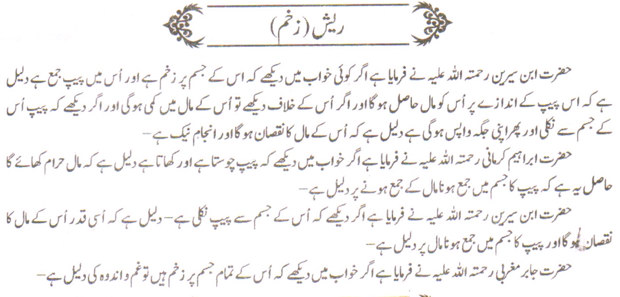 ریش (زخم)
حضرت ابن سیرین رحمتہ اللہ علیہ نے فرمایا ہے اگر کوئی خواب میں دیکھے کہ اس کے جسم پر زخم ہے اور اُس میں پیپ جمع ہے دلیل
ہے کہ اس پیپ کے اندازے پر اُس کو مال حاصل ہو گا اور اگر اُس کے خلاف دیکھے تو اُس کے مال میں کمی ہو گی اور اگر دیکھے کہ پیپ اُس
کے جسم سے نکلی اور پھر اپنی جگہ واپس ہو گئی ہے دلیل ہے کہ اُس کے مال کا نقصان ہو گا اور انجام نیک ہے–
حضرت ابراہیم کرمانی رحمتہ اللہ علیہ نے فرمایا ہے اگر خواب میں دیکھے کہ پیپ چوستا ہے اور کھاتا ہے دلیل ہے کہ مال حرام کھائے گا
حاصل یہ ہے کہ پیپ کا جسم میں جمع ہونا مال کے جمع ہونے پر دلیل ہے–
حضرت ابن سیرین رحمتہ اللہ علیہ نے فرمایا ہے اگر دیکھے کہ اُس کے جسم سے پیپ نکلی ہے– دلیل ہے کہ اُسی قدر اُس کے مال کا
نقصان ہو گا اور پیپ کا جسم میں جمع ہونا مال پر دلیل ہے–
حضرت جابر مغربی رحمتہ اللہ علیہ نے فرمایا ہے اگر خواب میں دیکھے کہ اُس کے تمام جسم پر زخم ہیں تو غم و اندوہ کی دلیل ہے–